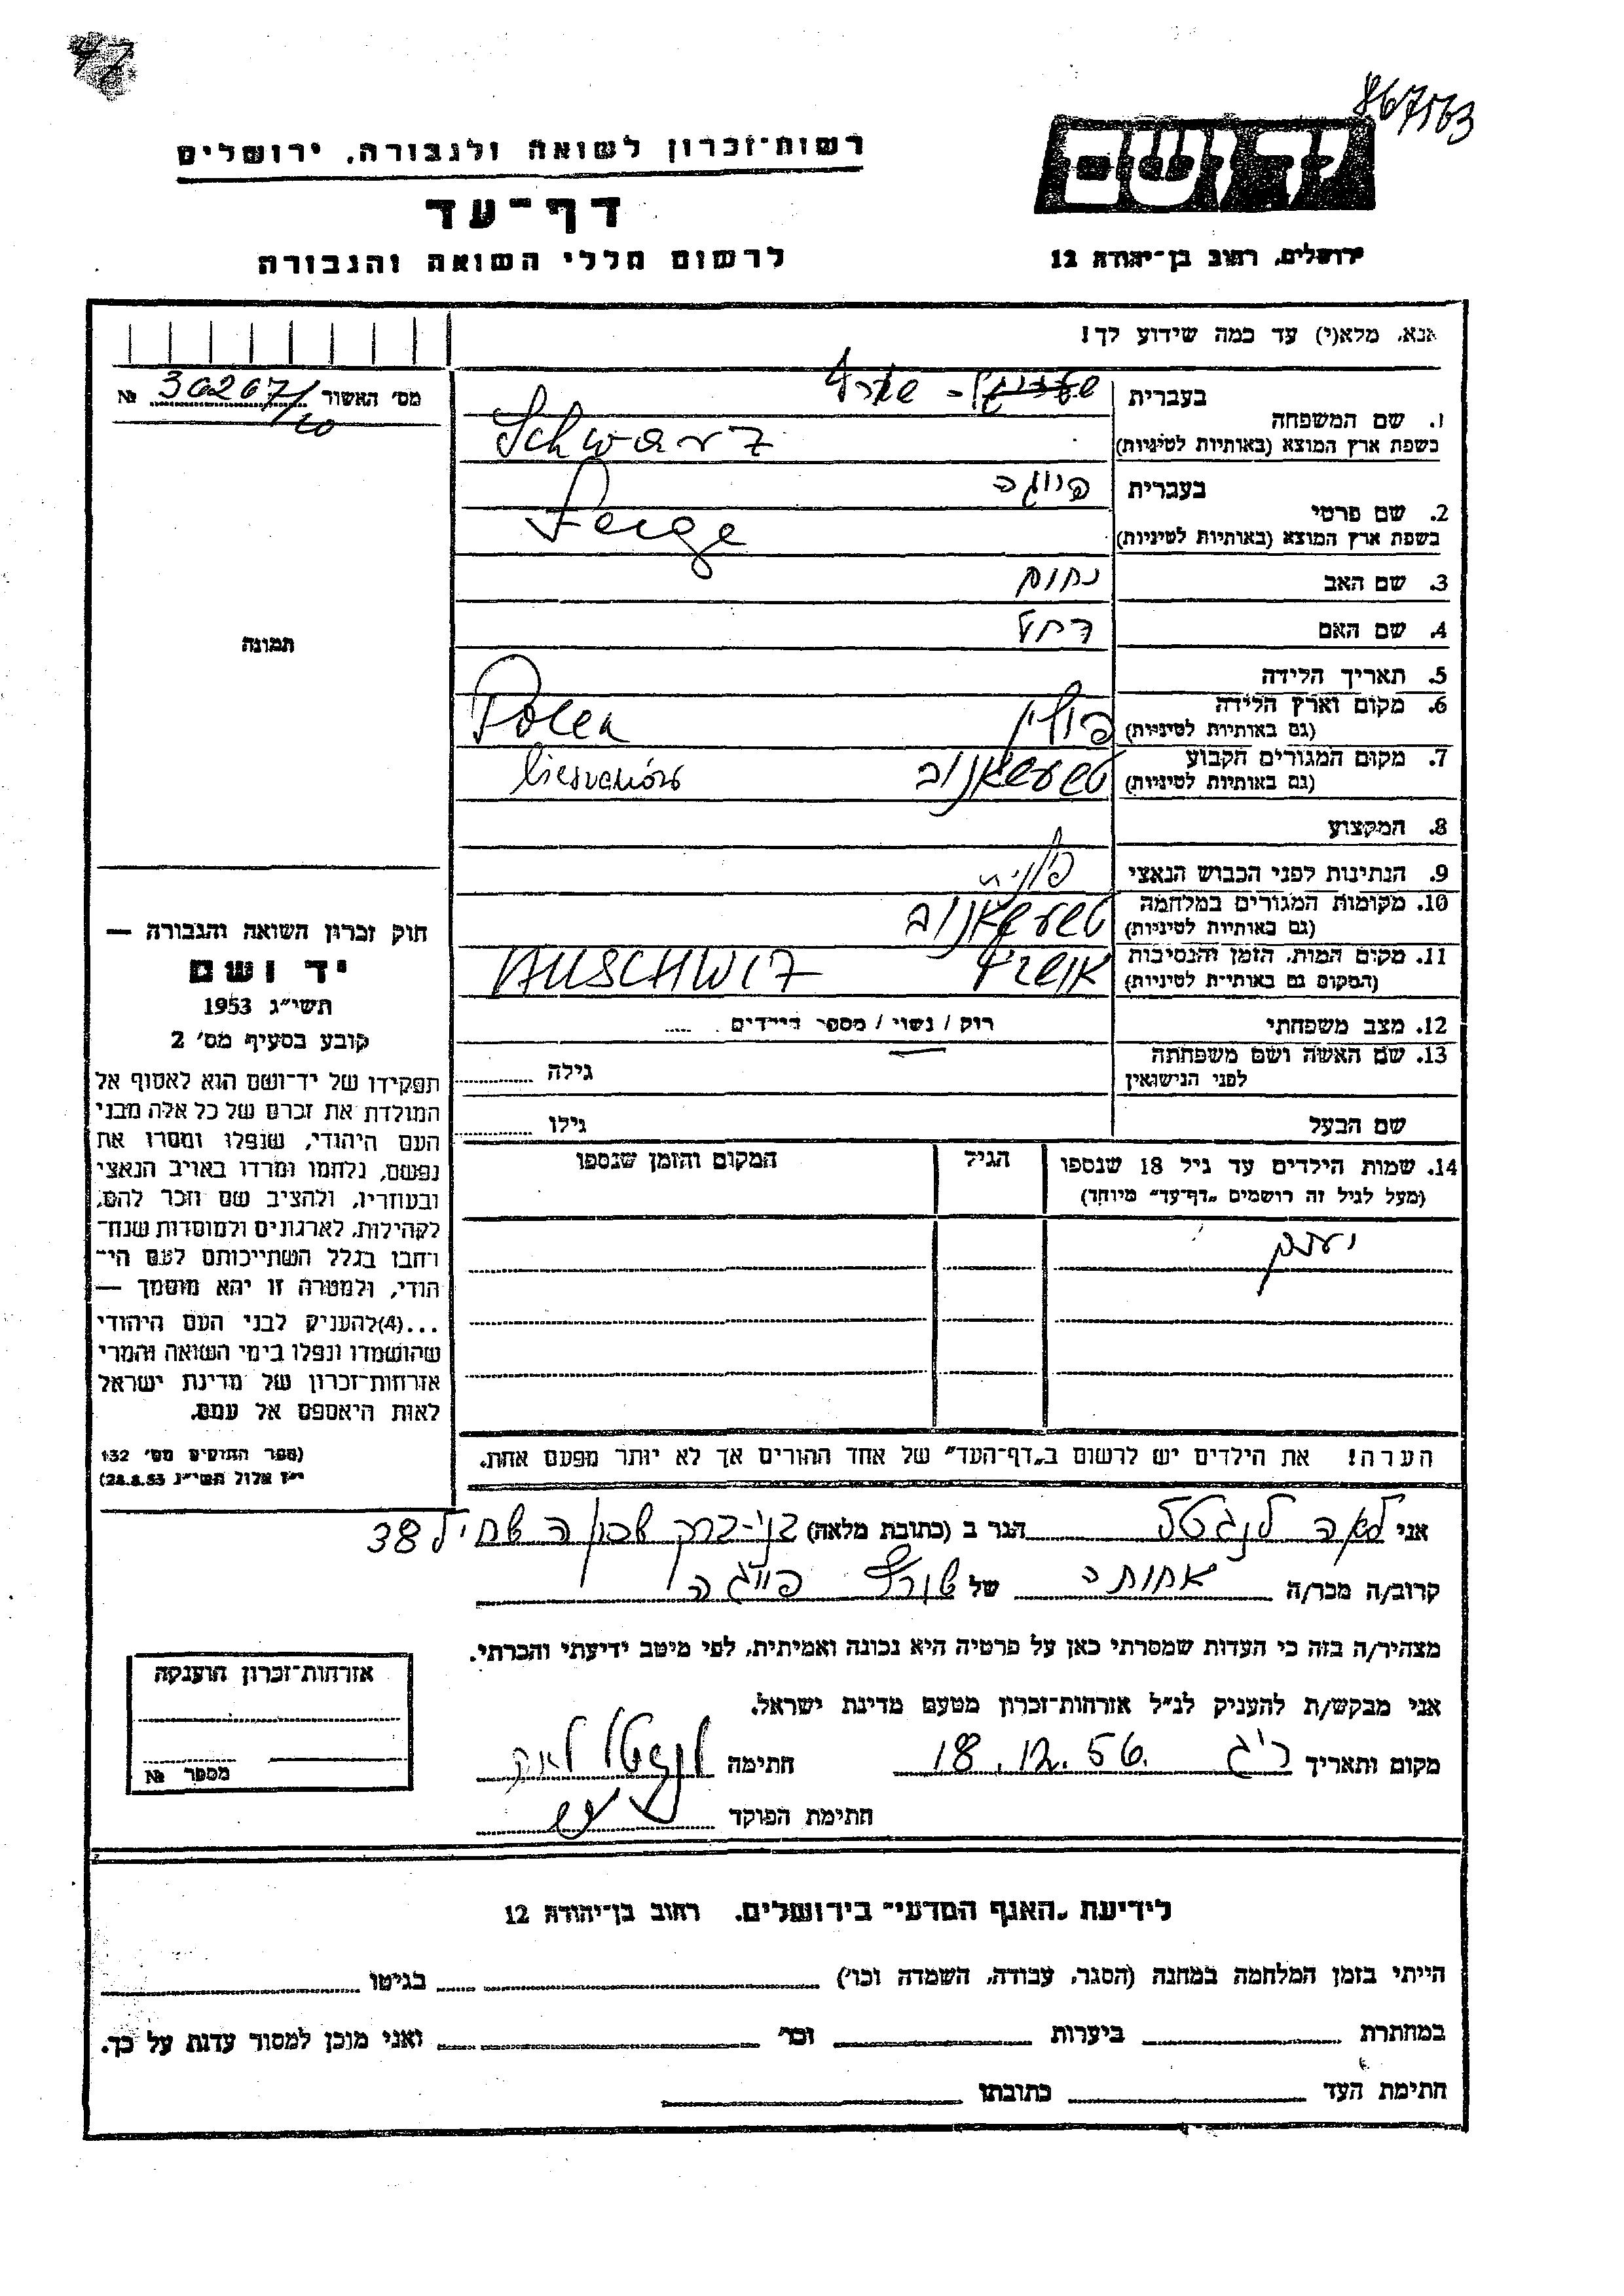 47
867563
יד ושם
רשות־זכרון לשואה ולגבורה, ירושלים
דף־עד
לרשום חללי השואה והגבורה
ירושלים, רחוב בן־יהודה 12
אנא, מלא(י) עד כמה שידוע לך!
מס׳ האשור 30267/20 №
1. שם המשפחה
בעברית שורץ
בשפת ארץ המוצא (באותיות לטיניות) Schwarz
2. שם פרטי
בעברית פייגה
בשפת ארץ המוצא (באותיות לטיניות) Feige
3. שם האב נחום
4. שם האם רחל
5. תאריך הלידה
6. מקום וארץ הלידה פולין Polen
(גם באותיות לטיניות)
7. מקום המגורים הקבוע טשעשאנוב
(גם באותיות לטיניות)
8. המקצוע
9. הנתינות לפני הכבוש הנאצי פולנית
10. מקומות המגורים במלחמה טשעשאנוב
(גם באותיות לטיניות)
11. מקום המות, הזמן והנסיבות אושויץ AUSCHWIZ
(המקום גם באותיות לטיניות)
12. מצב משפחתי רווק / נשוי / מספר הילדים
13. שם האשה ושם משפחתה
לפני הנישואין
גילה
שם הבעל
גילו
14. שמות הילדים עד גיל 18 שנספו
(מעל לגיל זה רושמים „דף־עד” מיוחד)
הגיל
המקום והזמן שנספו
יעקב
הערה! את הילדים יש לרשום ב„דף־העד” של אחד ההורים אך לא יותר מפעם אחת.
תמונה
חוק זכרון השואה והגבורה —
יד ושם
תשי״ג 1953
קובע בסעיף מס׳ 2
תפקידו של יד־ושם הוא לאסוף אל
המולדת את זכרם של כל אלה מבני
העם היהודי, שנפלו ומסרו את
נפשם, נלחמו ומרדו באויב הנאצי
ובעוזריו, ולהציב שם וזכר להם,
לקהילות, לארגונים ולמוסדות שנח־
רבו בגלל השתייכותם לעם הי־
הודי, ולמטרה זו יהא מוסמך —
...(4)להעניק לבני העם היהודי
שהושמדו ונפלו בימי השואה והמרי
אזרחות־זכרון של מדינת ישראל
לאות היאספם אל עמם.
(ספר החוקים מס׳ 132
י״ז אלול תשי״ג 28.8.53)
אני לאה לנגטל הגר ב (כתובת מלאה) בני-ברק שכון ה 38
קרוב/ה מכר/ה אחותה של שורץ פייגה
מצהיר/ה בזה כי העדות שמסרתי כאן על פרטיה היא נכונה ואמיתית, לפי מיטב ידיעתי והכרתי.
אני מבקש/ת להעניק לנ״ל אזרחות־זכרון מטעם מדינת ישראל.
מקום ותאריך 18.12.56. חתימה לאה
חתימת הפוקד
אזרחות־זכרון הוענקה
מספר №
לידיעת „האגף המדעי” בירושלים, רחוב בן־יהודה 12
הייתי בזמן המלחמה במחנה (הסגר, עבודה, השמדה וכו׳) בגיטו
במחתרת ביערות וכו׳ ואני מוכן למסור עדות על כך.
חתימת העד כתובתו